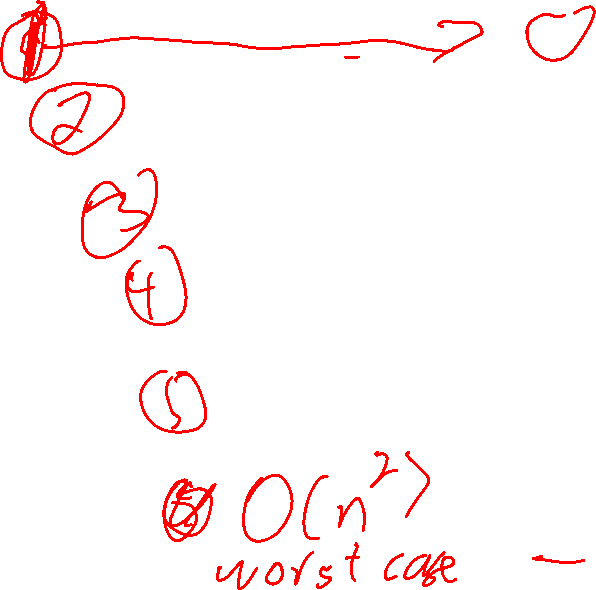 1
2
3
4
5
O(n²)
worst case